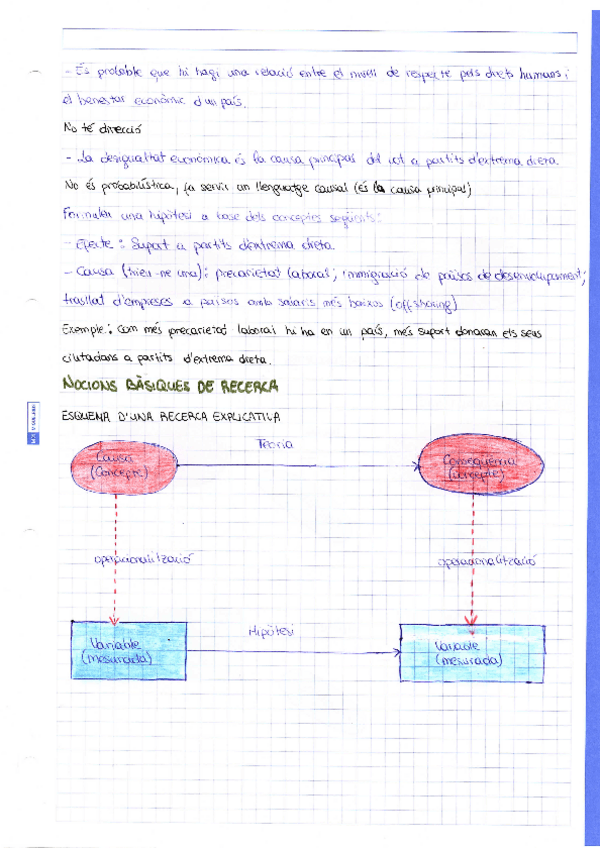 - És probable que hi hagi una relació entre el nivell de respecte pels drets humans i
el benestar econòmic d'un país.
No té direcció
- La desigualtat econòmica és la causa principal del vot a partits d'extrema dreta.
No és probabilística, fa servir un llenguatge causal (és la causa principal)
Formular una hipòtesi a base dels conceptes següents:
- Efecte: Suport a partits d'extrema dreta.
- Causa (trieu-ne una): precarietat laboral; immigració de països de desenvolupament;
trasllat d'empreses a països amb salaris més baixos (offshoring)
Exemple: Com més precarietat laboral hi ha en un país, més suport donaran els seus
ciutadans a partits d'extrema dreta.
NOCIONS BÀSIQUES DE RECERCA
ESQUEMA D'UNA RECERCA EXPLICATIVA
Teoria
Causa
(Concepte)
Conseqüència
(concepte)
operacionalització
operacionalització
Hipòtesi
Variable
(mesurada)
Variable
(mesurada)